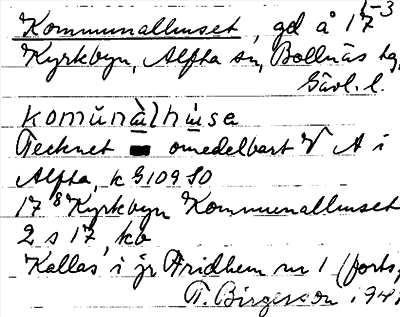 Kommunalhuset, gd å 17 1-3
Kyrkbyn, Alfta sn, Bollnäs tg,
Gävl. l.
komŭnàlhùsa
Tecknet ▬ omedelbart V A i
Alfta, k G 109 SO
17 8 Kyrkbyn Kommunalhuset
2 s 17, kb
Kallas i jr Fridhem nr 1 (forts,
T. Birgersson 194